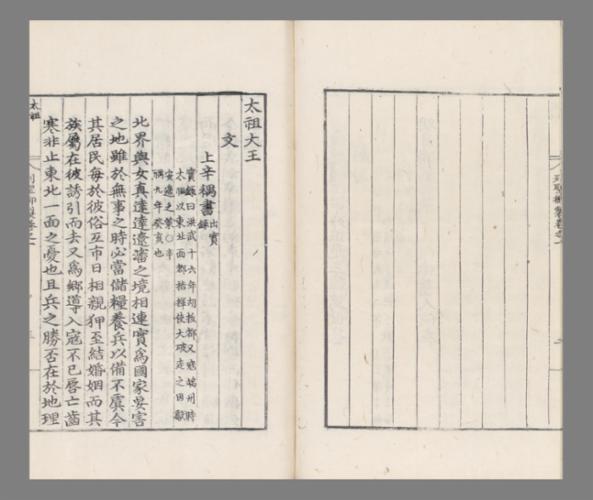 太祖大王
文
上辛禑書出實錄
實錄曰洪武十六年胡拔都又寇端州時
太祖以東北面都指揮使大破走之因獻
安邊之策○辛
禑九年癸亥也
北界與女真達達遼瀋之境相連實爲國家要害
之地雖於無事之時必當儲糧養兵以備不虞今
其居民每於彼俗互市日相親狎至結婚姻而其
族屬在彼誘引而去又爲鄕導入寇不已唇亡齒
寒非止東北一面之憂也且兵之勝否在於地理
太祖
列聖御製卷之一
列聖御製卷之一